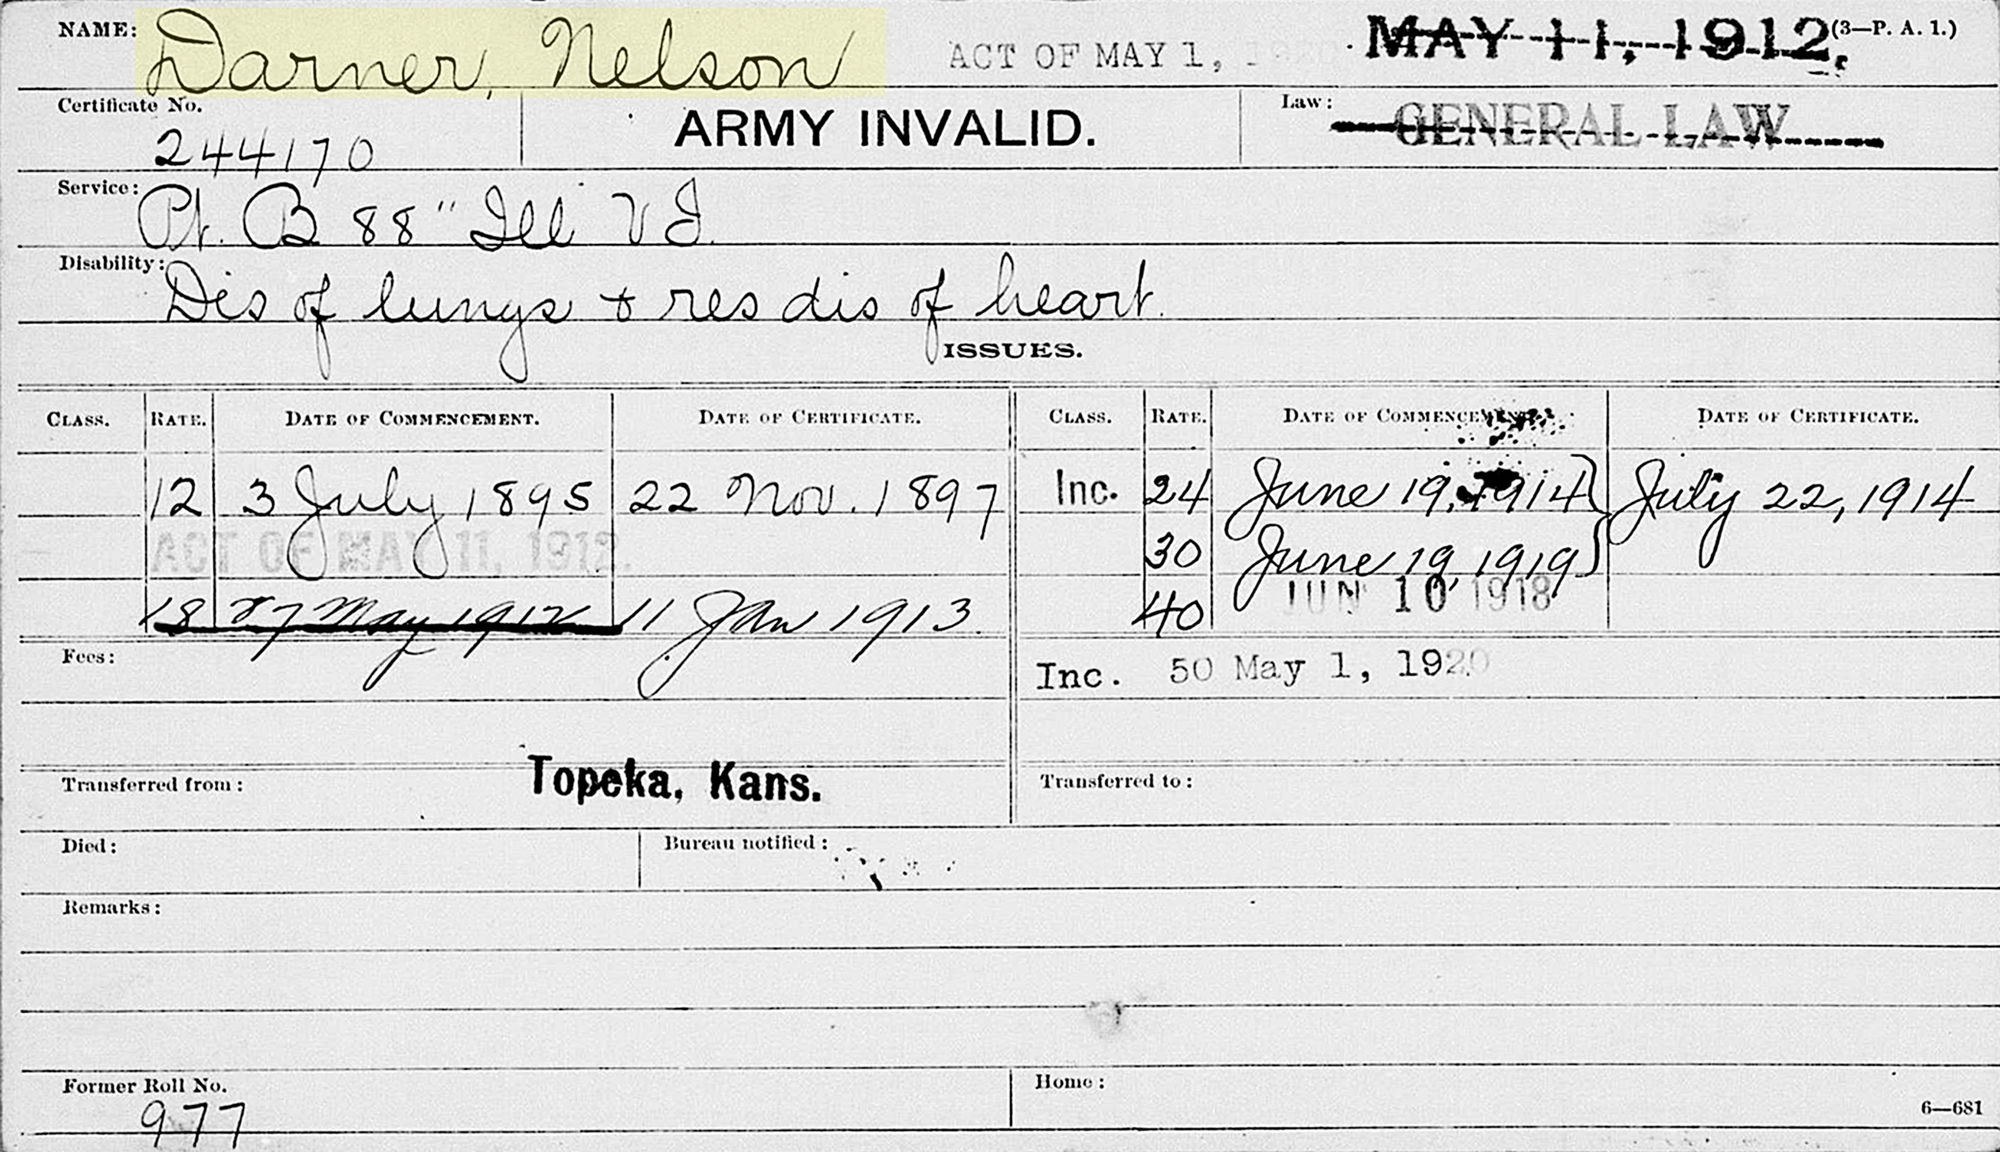 NAME: Darner, Nelson ACT OF MAY 1, 1920 MAY 11, 1912. (3—P. A. 1.)
Certificate No. 244170 ARMY INVALID. Law: GENERAL LAW
Service: Pt. B 88" Ill V I.
Disability: Dis of lungs & res dis of heart.
ISSUES.
CLASS. RATE. DATE OF COMMENCEMENT. DATE OF CERTIFICATE. CLASS. RATE. DATE OF COMMENCEMENT. DATE OF CERTIFICATE.
12 3 July 1895 22 Nov. 1897 Inc. 24 June 19, 1914 } July 22, 1914
ACT OF MAY 11, 1912. 30 June 19, 1919 }
18 27 May 1912 11 Jan 1913. 40 JUN 10 1918
Fees: Inc. 50 May 1, 1920
Transferred from: Topeka, Kans. Transferred to:
Died: Bureau notified:
Remarks:
Former Roll No. 977 Home:
6—681